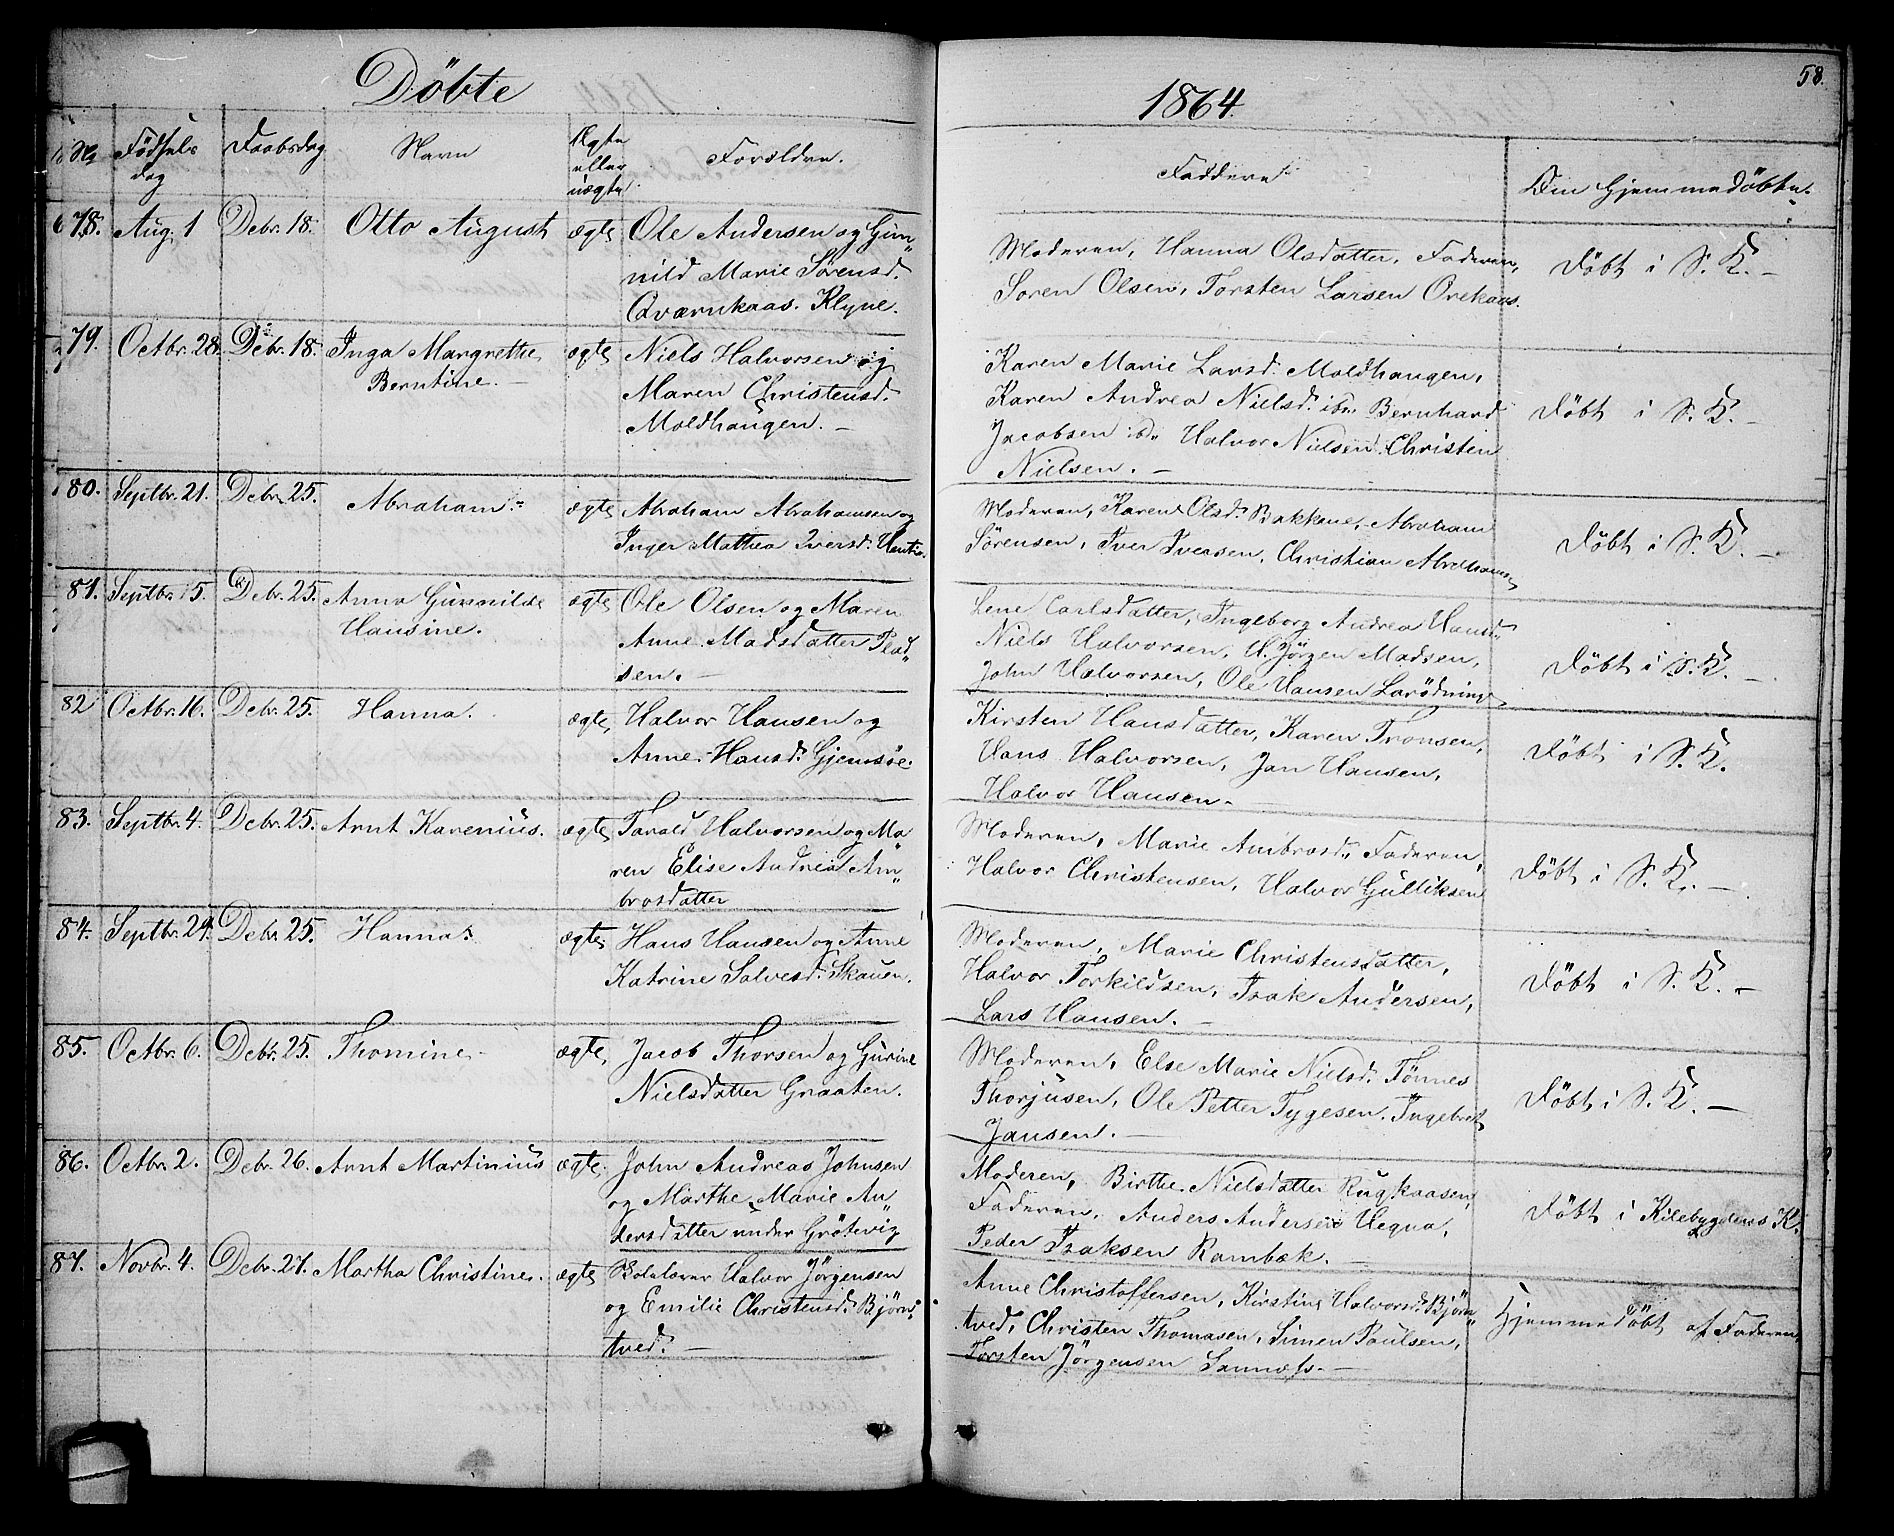 Döbte
1864.
58.
No Födsels dag Daabsdag Navn Ægte eller uægte Forældre.
Faddere
Om Hjemmedöbte.
78. Aug. 1 Debr. 18. Otto August ægte Ole Andersen og Gun„
nild Marie Sørensd.
Qværnkaas. Klyve.
Moderen, Hanna Olsdatter, Faderen,
Soren Olsen, Torsten Larsen Orekaas.
Döbt i S. K. –
79. Octbr. 28. Debr. 18. Inga Margrethe ægte Niels Halvorsen og
Berntine. – Maren Christensd.
Moldhaugen. –
Karen Marie Larsd. Moldhaugen,
Karen Andrea Nielsd. ibd. Bernhard
Jacobsen ibd. Halvor Nielsen Christen
Nielsen. –
Döbt i S. K. –
80. Septbr. 21. Debr. 25. Abraham. ægte Abraham Abrahamsen og
Inger Mathea Iversd.
Moderen, Karen Olsd. Bakkene, Abraham
Sörensen, Iver Iversen, Christian Abrahamsen
Döbt i S. K. –
81. Septbr. 15. Debr. 25. Anna Gunnilde ægte Ole Olsen og Maren
Hansine. Anne Madsdatter Plad„
sen. –
Lene Carlsdatter, Ingeborg Andrea Hansd.
Niels Halvorsen, H. Jörgen Madsen,
John Halvorsen, Ole Hansen Larödninge
Döbt i S. K. –
82 Octbr. 16. Debr. 25. Hanna. ægte Halvor Hansen og
Anne Hansd. Gjemsöe.
Kirsten Hansdatter, Karen Tronsen,
Hans Halvorsen, Jan Hansen,
Halvor Hansen. –
Döbt i S. K.
83. Septbr. 4. Debr. 25. Arnt Karenius. ægte Tarald Halvorsen og Ma
ren Elise Andrea Am„
brosdatter
Moderen, Marie Ambrosd. Faderen,
Halvor Christensen, Halvor Gulliksen
Döbt i S. K. –
84. Septbr. 24. Debr. 25. Hanna. ægte Hans Hansen og Anne
Katrine Salvesd. Skauen.
Moderen, Marie Christensdatter,
Halvor Torkildsen, Isak Andersen,
Lars Hansen. –
Döbt i S. K. –
85. Octbr. 6. Debr. 25. Thomine ægte Jacob Thorsen og Gurine
Nielsdatter Graaten.
Moderen, Else Marie Nielsd. Tönnes
Thorjusen, Ole Petter Tygesen. Ingebret
Jansen. –
Döbt i S. K. –
86. Octbr. 2. Debr. 26. Arnt Martinius ægte. John Andreas Johnsen
og Marthe Marie An„
dersdatter under Grötevig
Moderen, Birthe Nielsdatter Rugkaasen,
Faderen, Anders Andersen Hegna,
Peder Isaksen Rambæk. –
Döbt i Kilebygdens K.
87. Novbr. 4. Debr. 27. Martha Christine. ægte Skolelærer Halvor Jörgensen
og Emilie Christensd. Björn„
tved. –
Anne Christoffersen, Kirstine Halvorsd. Björn„
tved, Christen Thomasen, Simen Paulsen,
Torsten Jörgensen Sannæss. –
Hjemmedöbt af Faderen,